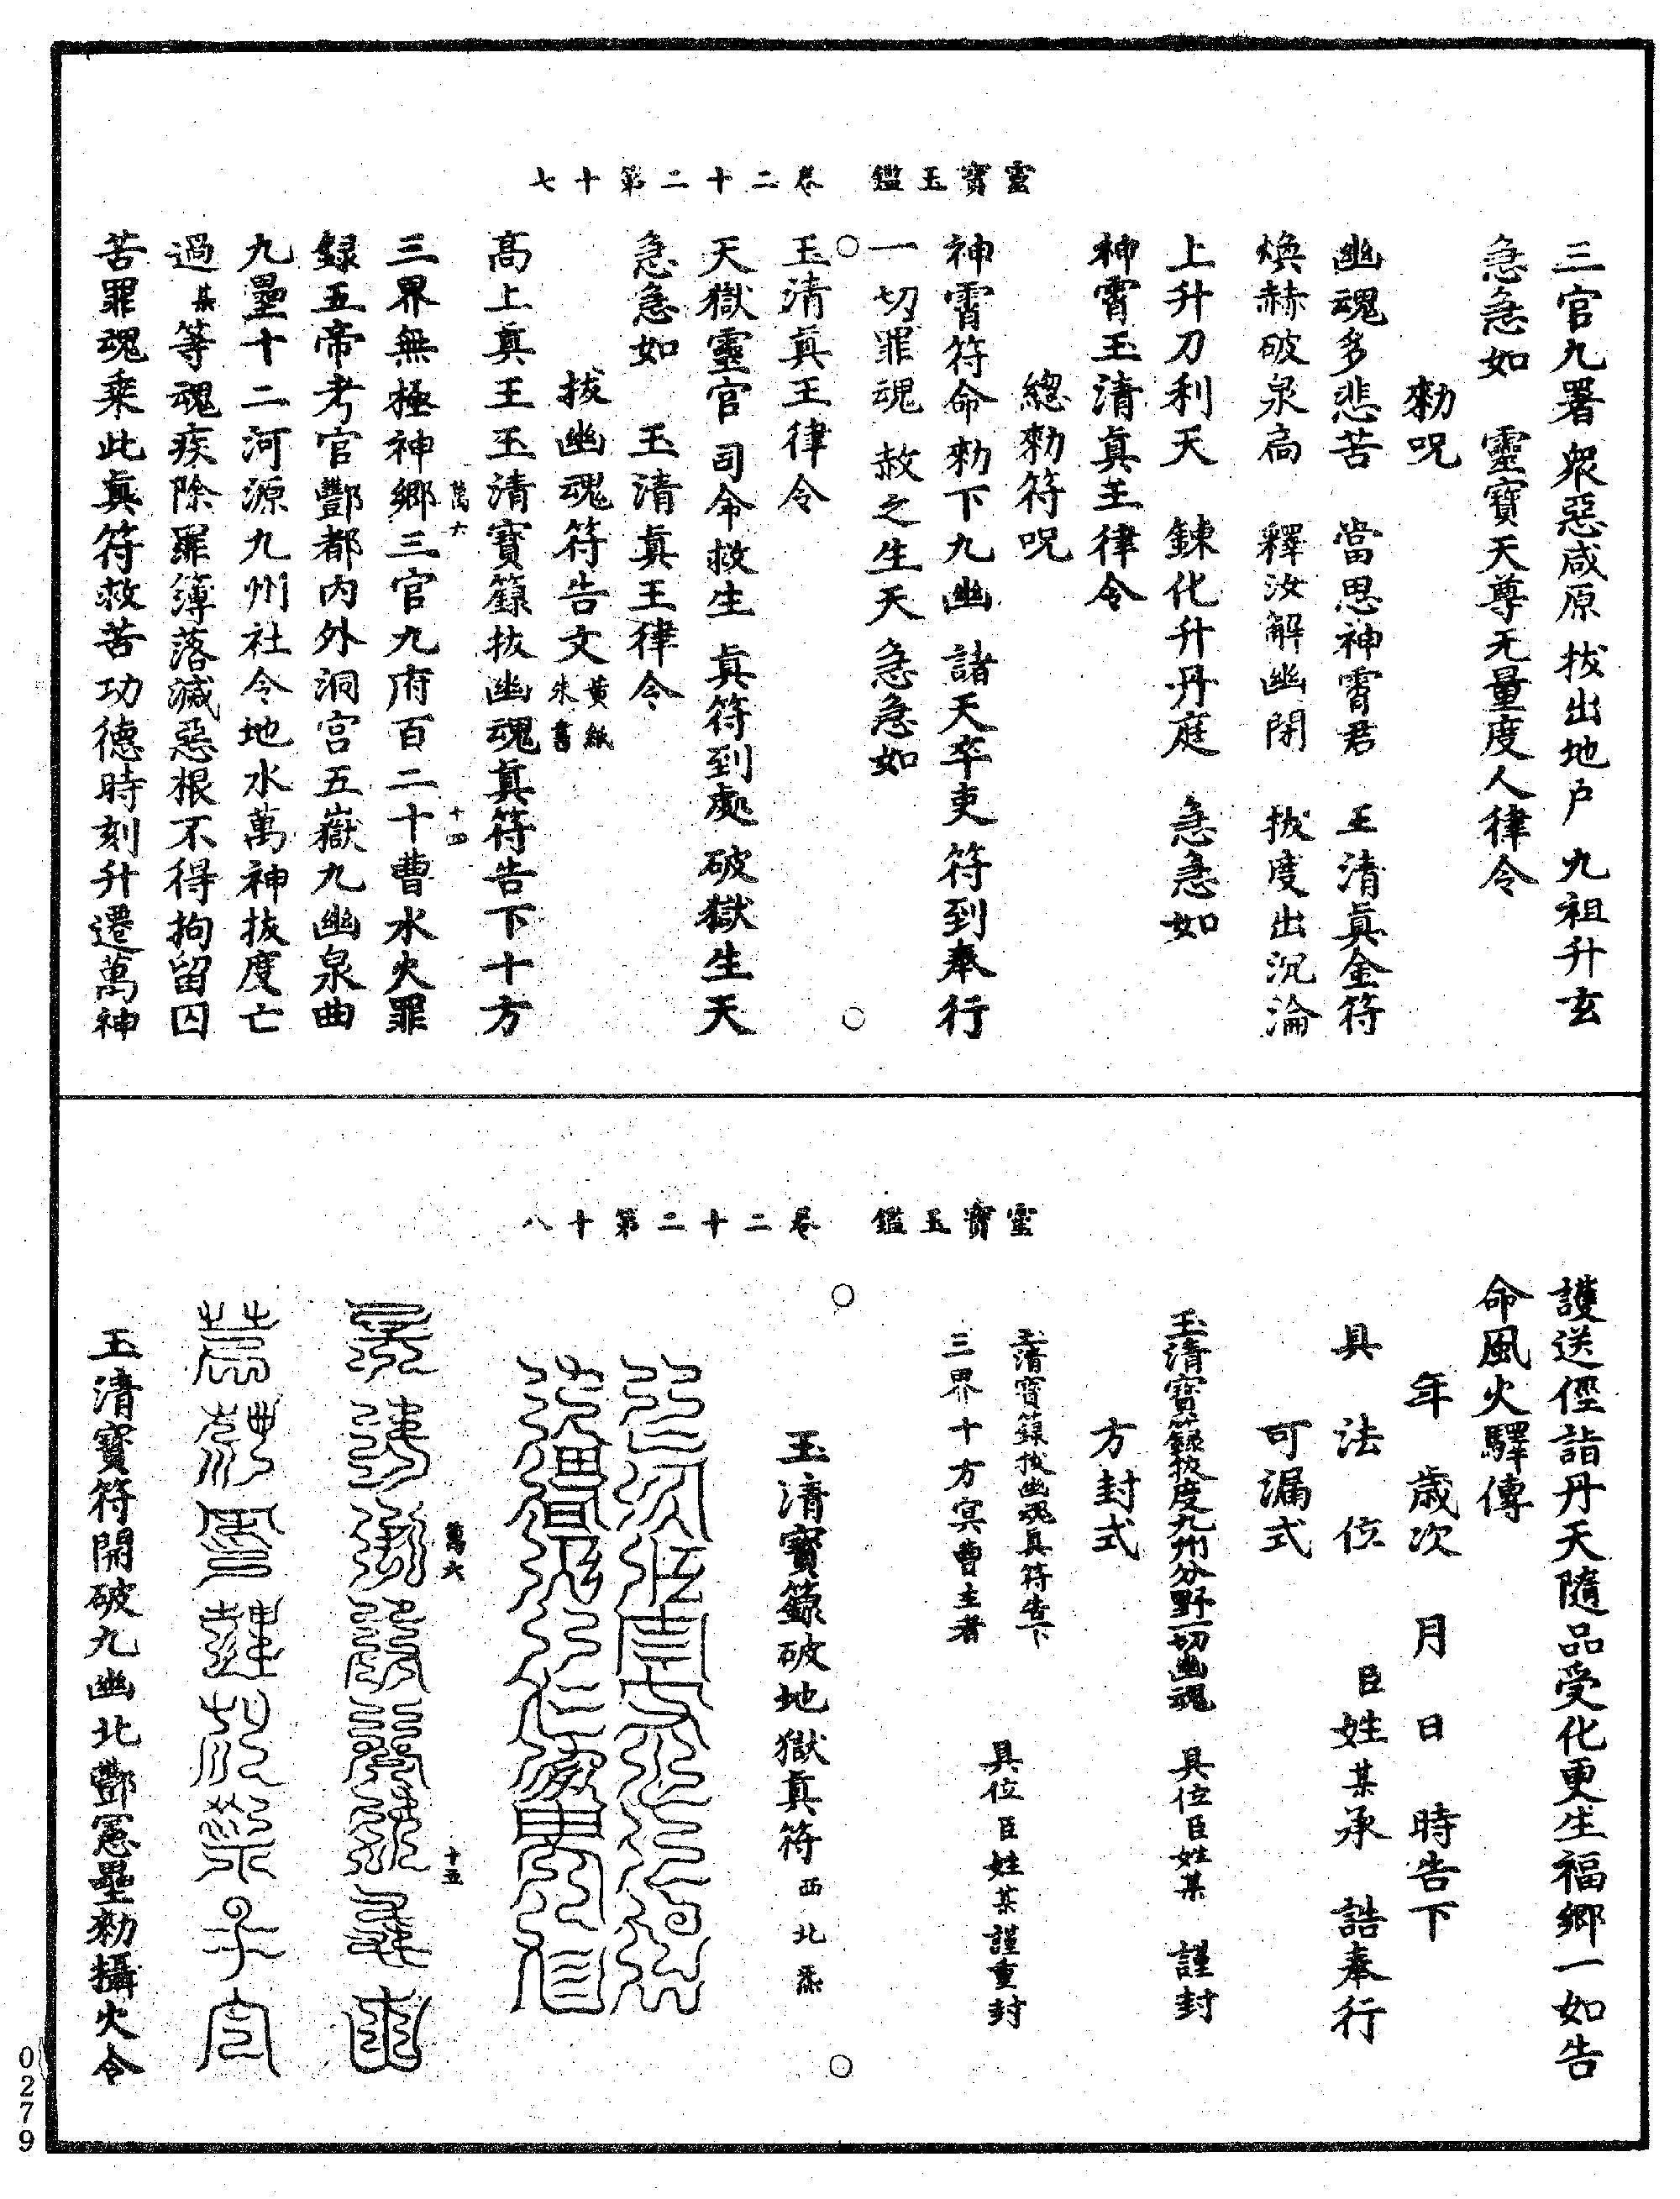 靈寶玉鑑　卷二十二第十七
三官九署　眾惡咸原　拔出地户　九祖升玄
急急如　靈寶天尊无量度人律令
敕呪
幽魂多悲苦　當思神霄君　玉清真金符
煥赫破泉扃　釋汝解幽閉　拔度出沉淪
上升刀利天　鍊化升丹庭　急急如
神霄玉清真王律令
總敕符呪
神霄符命　敕下九幽　諸天卒吏　符到奉行
一切罪魂　赦之生天　急急如
玉清真王律令
天獄靈官　司命救生　真符到處　破獄生天
急急如　玉清真王律令
拔幽魂符告文黃紙朱書
高上真王玉清寶籙拔幽魂真符告下十方
萬六　十四
三界無極神鄉三官九府百二十曹水火罪
録五帝考官酆都內外洞宮五嶽九幽泉曲
九壘十二河源九州社令地水萬神拔度亡
過某等魂疾除罪簿落滅惡根不得拘留囚
苦罪魂乘此真符救苦功德時刻升遷萬神
靈寶玉鑑　卷二十二第十八
護送徑詣丹天隨品受化更生福鄉一如告
命風火驛傳
年　歲次　月　日　時告下
具　法　位　臣姓某承　誥奉行
可漏式
玉清寶籙拔度九州分野一切幽魂　具位臣姓某　謹封
方封式
玉清寶籙拔幽魂真符告下
三界十方冥曹主者　具位臣姓某謹重封
玉清寶籙破地獄真符西北炁
萬六　十五
玉清寶符開破九幽北酆寒壘敕攝火令
0279